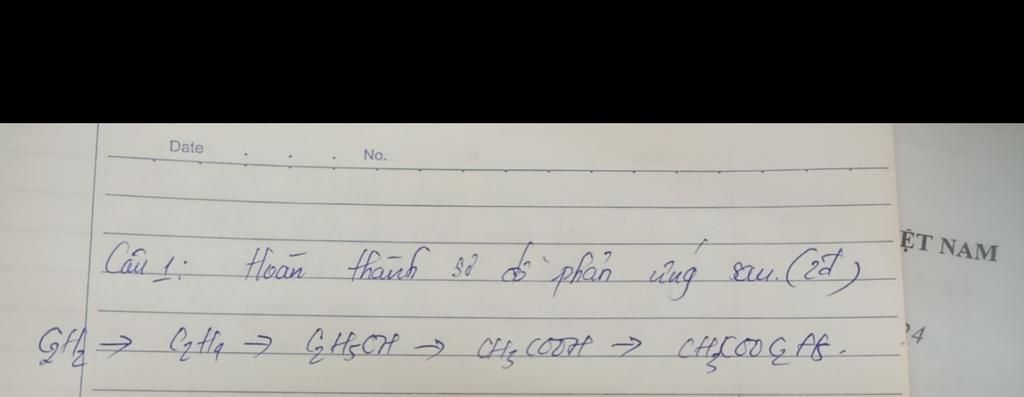 Date . . . No.
ỆT NAM
Câu 1: Hoàn thành sơ đồ phản ứng sau. (2đ)
24
C2H2 → C2H4 → C2H5OH → CH3COOH → CH3COOC2H5.